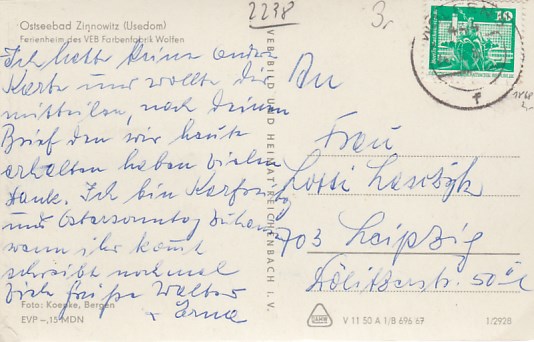 2238
3,-
Ostseebad Zinnowitz (Usedom)
Ferienheim des VEB Farbenfabrik Wolfen
Ich hatte keine andre
Karte und wollte dir
mitteilen, nach deinen
Brief den wir heute
erhalten haben vielen
Dank. Ich bin Karfreitag
und Ostersonntag zuhause
wann ihr kommt
schreibt nochmal
Viele Grüße Walter
+ Erna
Foto: Koepke, Bergen
EVP –,15 MDN
VEB BILD UND HEIMAT REICHENBACH I. V.
10
An
Frau
Lotti
703 Leipzig
50
V 11 50 A 1/B 696/67
1/2928